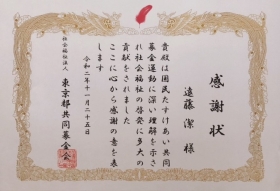 感謝状
遠藤潔様
貴殿は国民たすけあい共同
募金運動に深い理解を示さ
れ社会福祉の啓発に多大の
貢献をされました
ここに心から感謝の意を表
します
令和二年十一月二十五日
社会福祉法人
東京都共同募金会